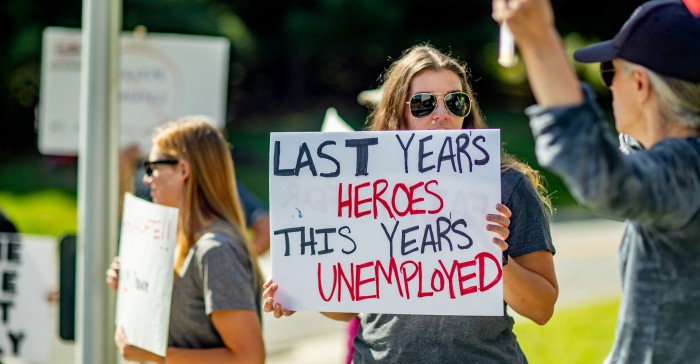 LAST YEAR'S
HEROES
THIS YEAR'S
UNEMPLOYED